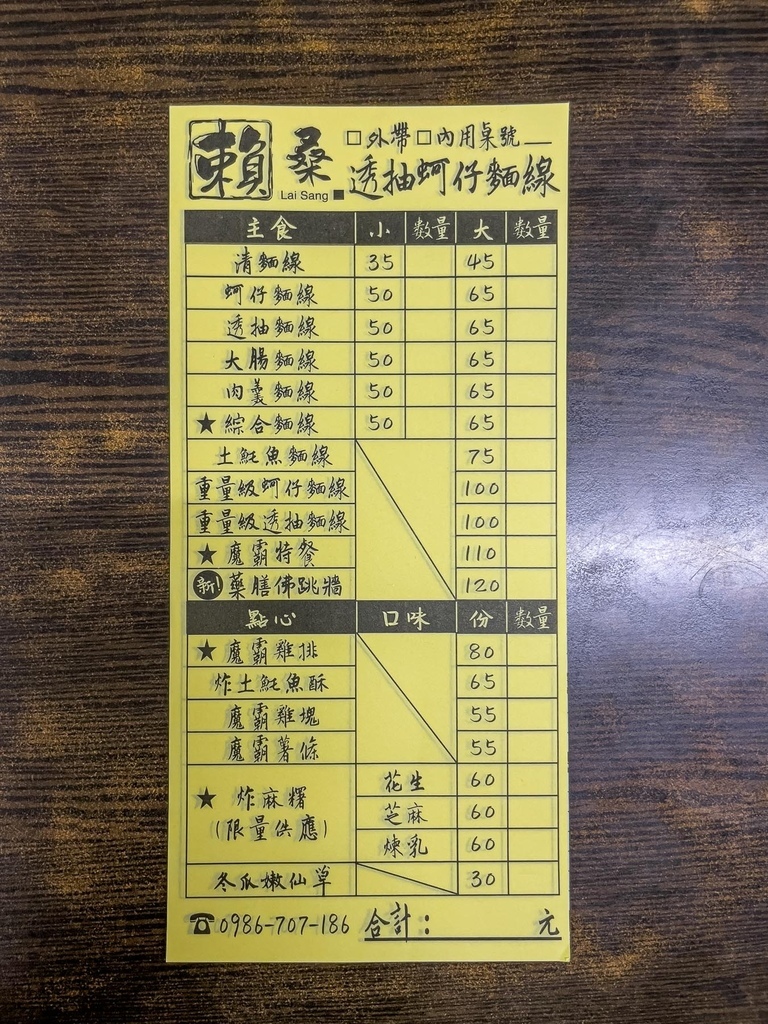 賴桑 □外帶 □內用桌號__
Lai Sang ■ 透抽蚵仔麵線
主食 小 數量 大 數量
清麵線 35 45
蚵仔麵線 50 65
透抽麵線 50 65
大腸麵線 50 65
肉羹麵線 50 65
★綜合麵線 50 65
土魠魚麵線 75
重量級蚵仔麵線 100
重量級透抽麵線 100
★魔霸特餐 110
新!藥膳佛跳牆 120
點心 口味 份 數量
★魔霸雞排 80
炸土魠魚酥 65
魔霸雞塊 55
魔霸薯條 55
★炸麻糬 花生 60
(限量供應) 芝麻 60
煉乳 60
冬瓜嫩仙草 30
☎0986-707-186 合計:______元